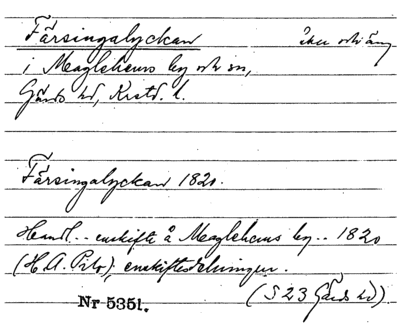 Fårsingalyckan åker och äng
i Maglehems by och sn,
Gärds hd, Krstd. l.
Fårsingalyckan 1820.
Handl... enskifte å Maglehems by... 1820
(H. A. Pihr), enskiftesdelningen.
Nr 5351. (S 23 Gärds hd)